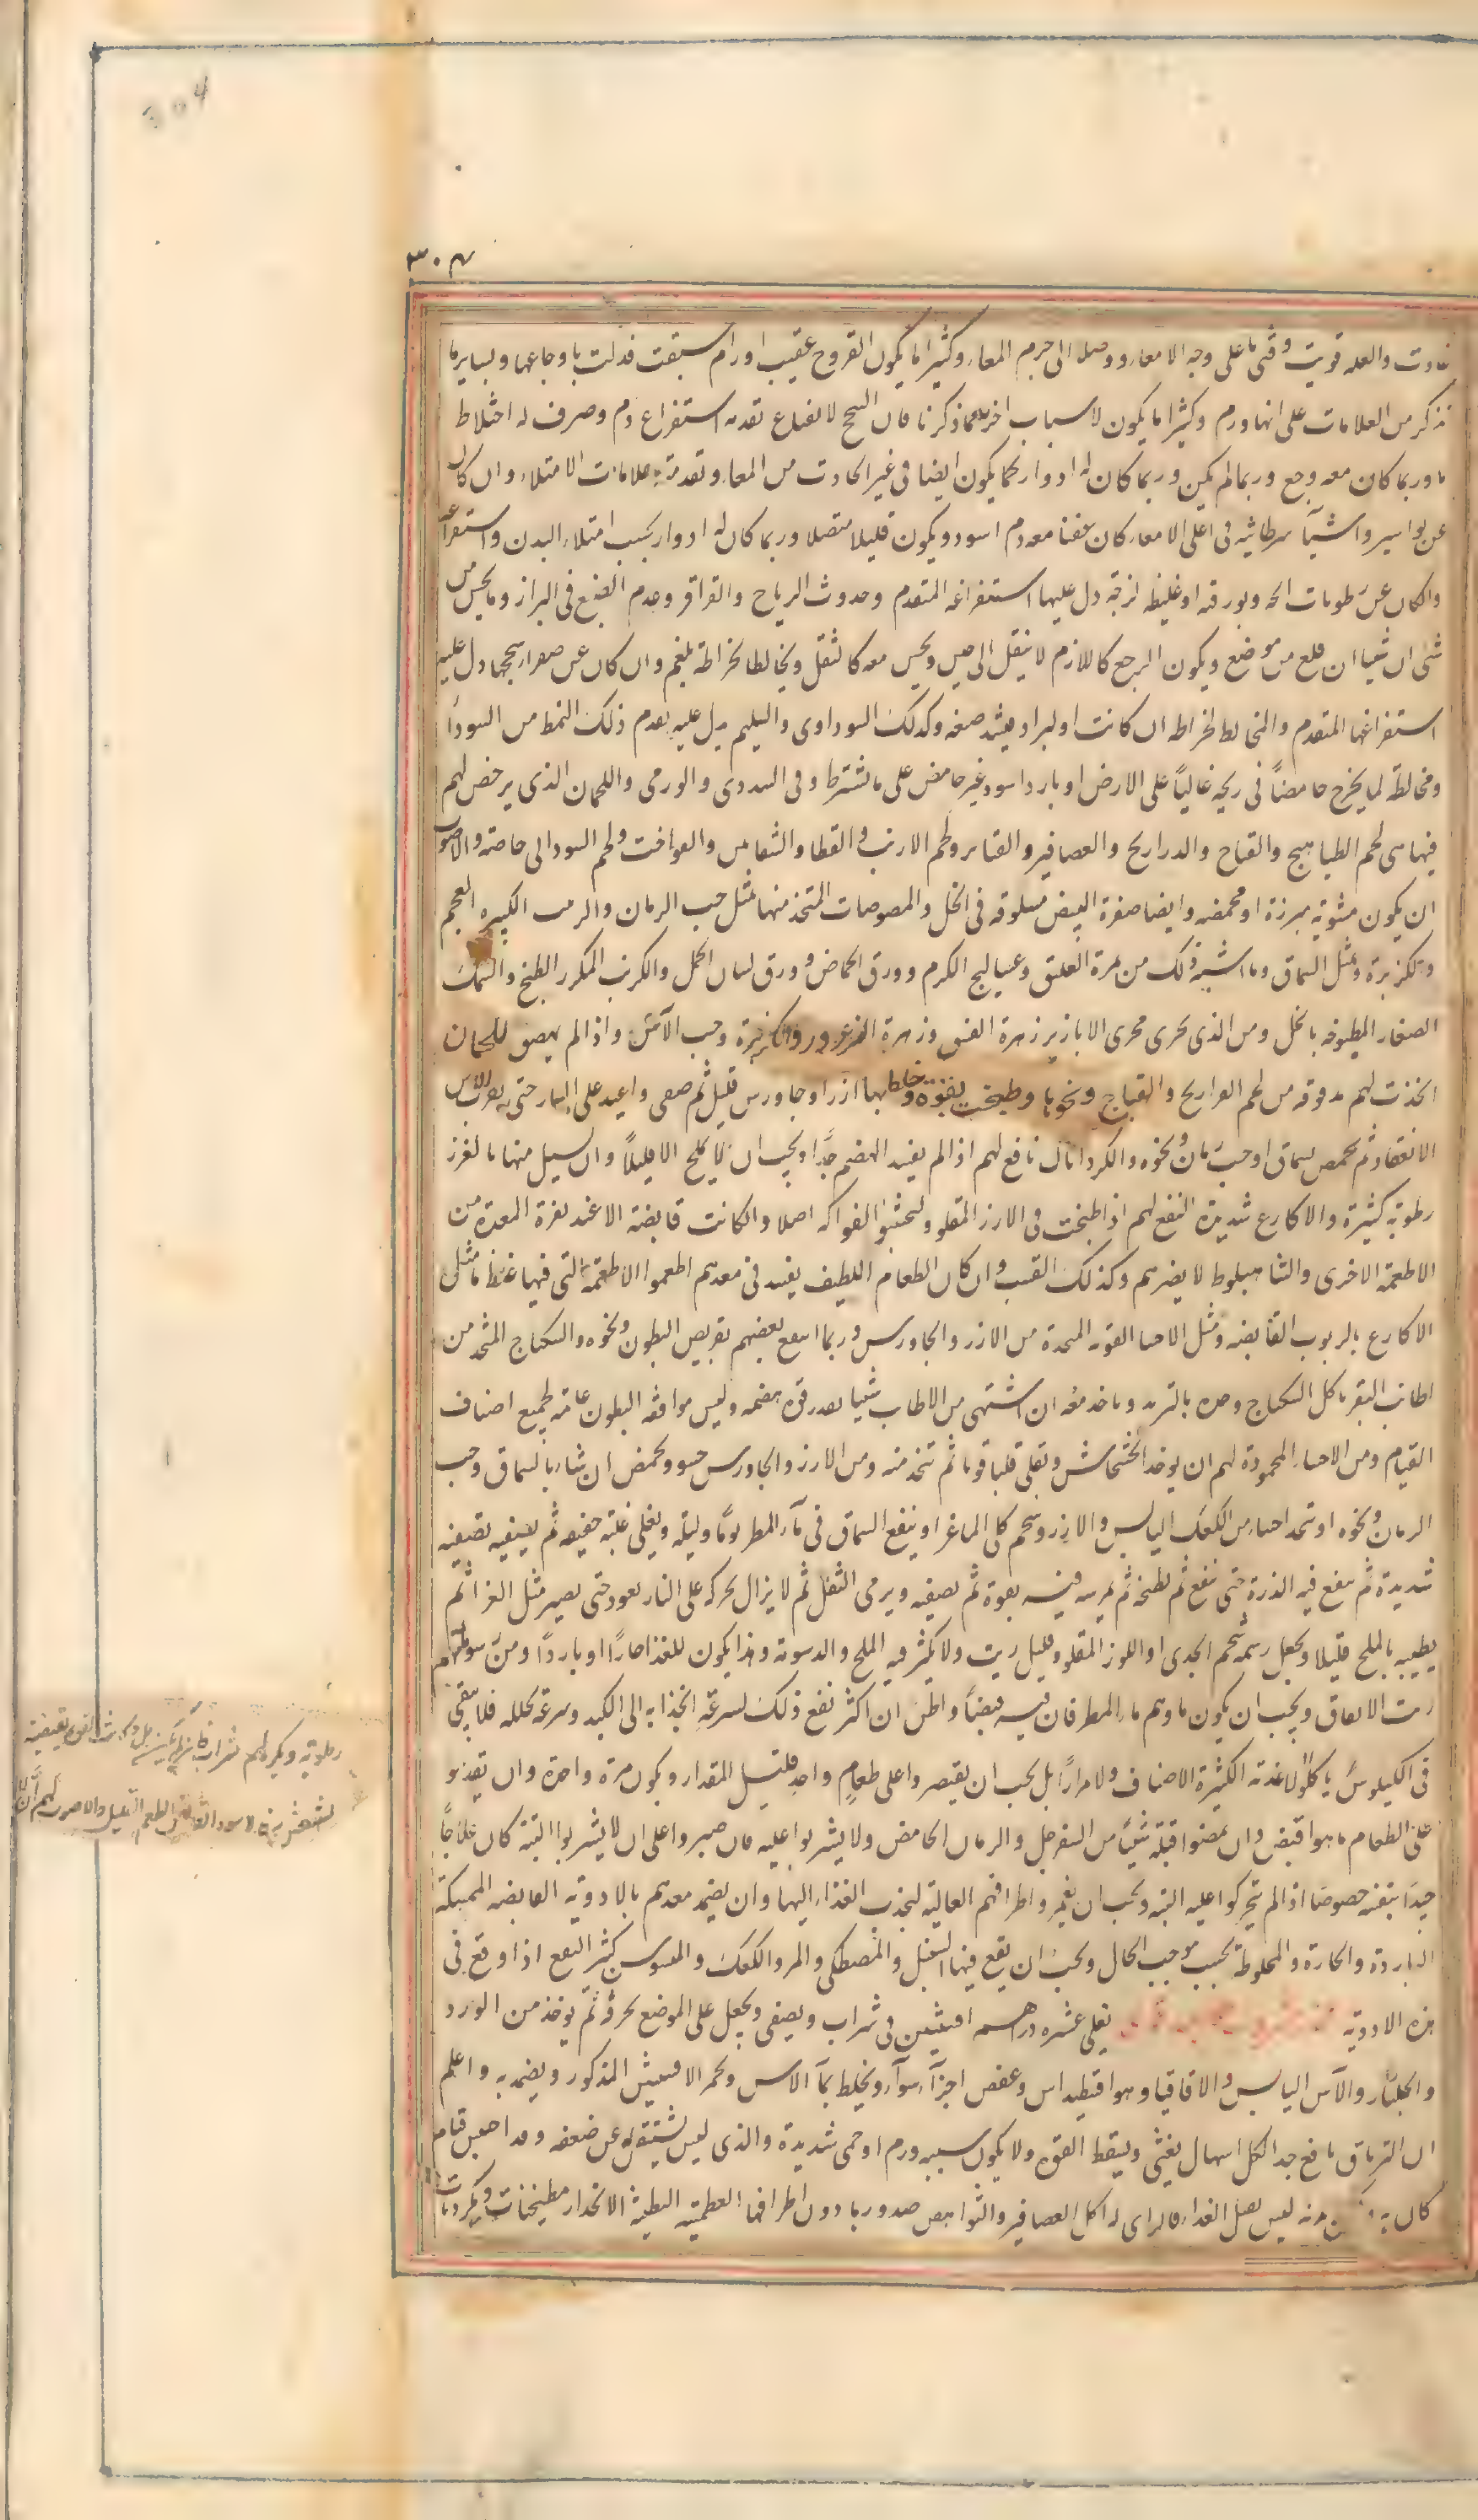 ٣٠٤
والعلة قويت وقتي ما على وجه الامعاء ووصل الى جرم المعاء وكثيرا ما يكون القروح عقيب اورام سبقت فدلت باوجاعها وبسايرها
نذكر من العلامات على انها ورم وكثيرا ما يكون لاسباب اخر مما ذكرنا فان السحج تقدمه استفراغ دم وصرف له اختلاط
ما وربما كان معه وجع وربما لم يكن وربما كان له ادوار كما يكون ايضا في غير الحادث من المعاء وتقدمته علامات الامتلاء وان كان
عن بواسير واشياء سرطانية في اعلى الامعاء كان عفنا معه دم اسود ويكون قليلا متصلا وربما كان له ادوار بحسب امتلاء البدن واستفراغه
والكان عن رطوبات مالحة وبورقية او غليظة لزجة دل عليها استفراغه المتقدم وحدوث الرياح والقراقر وعدم النضج في البراز وما يحس من
شئ ان شيئا انقلع من موضع ويكون الوجع كاللازم لا ينتقل الى حين ويحس معه كالثقل ويخالط الخراطة بلغم وان كان عن صفراء سحجها دل عليه
استفراغها المتقدم والمخالط لخراطه ان كانت او لبراد يشتد صفره وكذلك السوداوى والسليم يدل عليه تقدم ذلك النمط من السوداء
ومخالطة لما يخرج حامضا في ريحه غاليا على الارض او بارد اسود غير حامض على ما نشترط وفي السددى والورمى واللحمان الذى يرخص لهم
فيها هى لحم الطياهيج والقباج والدراريج والعصافير والقنابر ولحم الارنب والقطا والشفانين والفواخت ولحم السودانى خاصة والاصوب
ان يكون مشوية مبرزة او محمضة وايضا صفرة البيض مسلوقة في الخل والمصوصات المتخذ منها بمثل حب الرمان والزبيب الكثير العجم
والكزبرة ومثل السماق وما اشبه ذلك من ثمرة العليق وعساليج الكرم وورق الحماض وورق لسان الحمل والكرنب المكرر الطبخ والسمك
الصغار المطبوخة بالخل ومن الذى يجرى مجرى الابازير زهرة الفستق وزهرة الزعرور والكزبرة وحب الآس واذا لم يهضموا اللحمان
اتخذت لهم مدقوقة من لحم الفراريج والقباج ونحوها وطبخت بقوة وخلط بها ارزا وجاورس قليل ثم صفى واعيد على النار حتى يقرب من
الانعقاد ثم يحمض بسماق او حب رمان ونحوه والكردناك نافع لهم اذا لم يفسد الهضم جدا ويجب ان لا يملح الا قليلا وان يسيل منها بالغرز
رطوبة كثيرة والاكارع شديدة النفع لهم اذا طبخت في الارز المقلو وليجتنبوا الفواكه اصلا وان كانت قابضة الا عند نفرة المعدة من
الاطعمة الاخرى والشاهبلوط لا يضرهم وكذلك القسب وان كان الطعام اللطيف يفسد في معدهم اطعموا الاطعمة التى فيها غلظ ما مثل
الاكارع بالربوب القابضة ومثل الاحساء القوية المتخذة من الارز والجاورس وربما انتفع بعضهم بقريص البطون ونحوه والسكباج المتخذ من
اطايب البقر ياكل السكباج وحده بالثريد وياخذ معه ان اشتهى من الاطايب شيئا بقدر قوة هضمه وليس موافقة البطون عامة لجميع اصناف
القيام ومن الاحساء المحمودة لهم ان يوخذ الخشخاش ويقلى قليا قويا ثم تتخذ منه ومن الارز والجاورس حسو ويحمض ان شاء بالسماق وحب
الرمان ونحوه او يتخذ احساء من الكعك اليابس والارز وشحم كلى الماعز او ينقع السماق في ماء المطر يوما وليلة ويغلى غلية خفيفة ثم يصفيه تصفية
شديدة ثم ينقع فيه الذرة حتى ينقع ثم يطبخه ثم يمرسه فيه بقوة ثم يصفيه ويرمى الثفل ثم لا يزال يحركه على النار بعود حتى يصير مثل الغراء ثم
يطيبه بالملح قليلا ويجعل دسمه شحم الجدى او اللوز المقلو وقليل زيت ولا يكثر فيه الملح والدسومة وهذا يكون للغذاء حارا او باردا ومن
زيت الانفاق ويجب ان يكون ماوهم ماء المطر فان فيه قبضا واظن ان اكثر نفع ذلك لسرعة انجذابه الى الكبد وسرعة تحلله فلا يبقى
في الكيلوس ياكلوا الاغذية الكثيرة الاصناف ولا مرارا بل يجب ان يقتصروا على طعام واحد قليل المقدار ويكون مرة واحدة وان يقدموا
على الطعام ما هو اقبض وان يمصوا قبله شيئا من السفرجل والرمان الحامض ولا يشربوا عليه فان صبروا على ان لا يشربوا البتة كان علاجا
جيدا بنفسه خصوصا اذا لم يتحركوا عليه البتة ويجب ان يغمروا اطرافهم العالية لجذب الغذاء اليها وان يضمد معدهم بالادوية القابضة الممسكة
الباردة والحارة والمخلوطة بحسب موجب الحال ويجب ان يقع فيها السنبل والمصطكى والمر والكعك والسوس كثير النفع اذا وقع في
هذه الادوية يغلى عشره دراهم افسنتين في شراب ويصفى ويجعل على الموضع بخرقة ثم يوخذ من الورد
والجلنار والآس اليابس والاقاقيا وهوافقطيداس وعفص اجزاء سواء ويخلط بماء الآس وخمر الافسنتين المذكور ويضمد به واعلم
ان الترياق نافع جدا لكل اسهال يغشى ويسقط القوة ولا يكون سببه ورم او حمى شديدة والذى ليس يستقر عن ضعفه
كان به ليس يصل الغذاء له اكل العصافير والنواهض صدورها دون اطرافها العظمية البطيئة الانحدار مطبخنات وكردنات
رطوبة ويكره لهم شراب